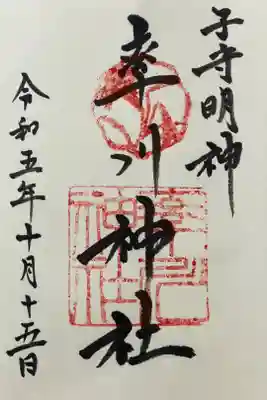 子守明神
率川神社
令和五年十月十五日
率川神社